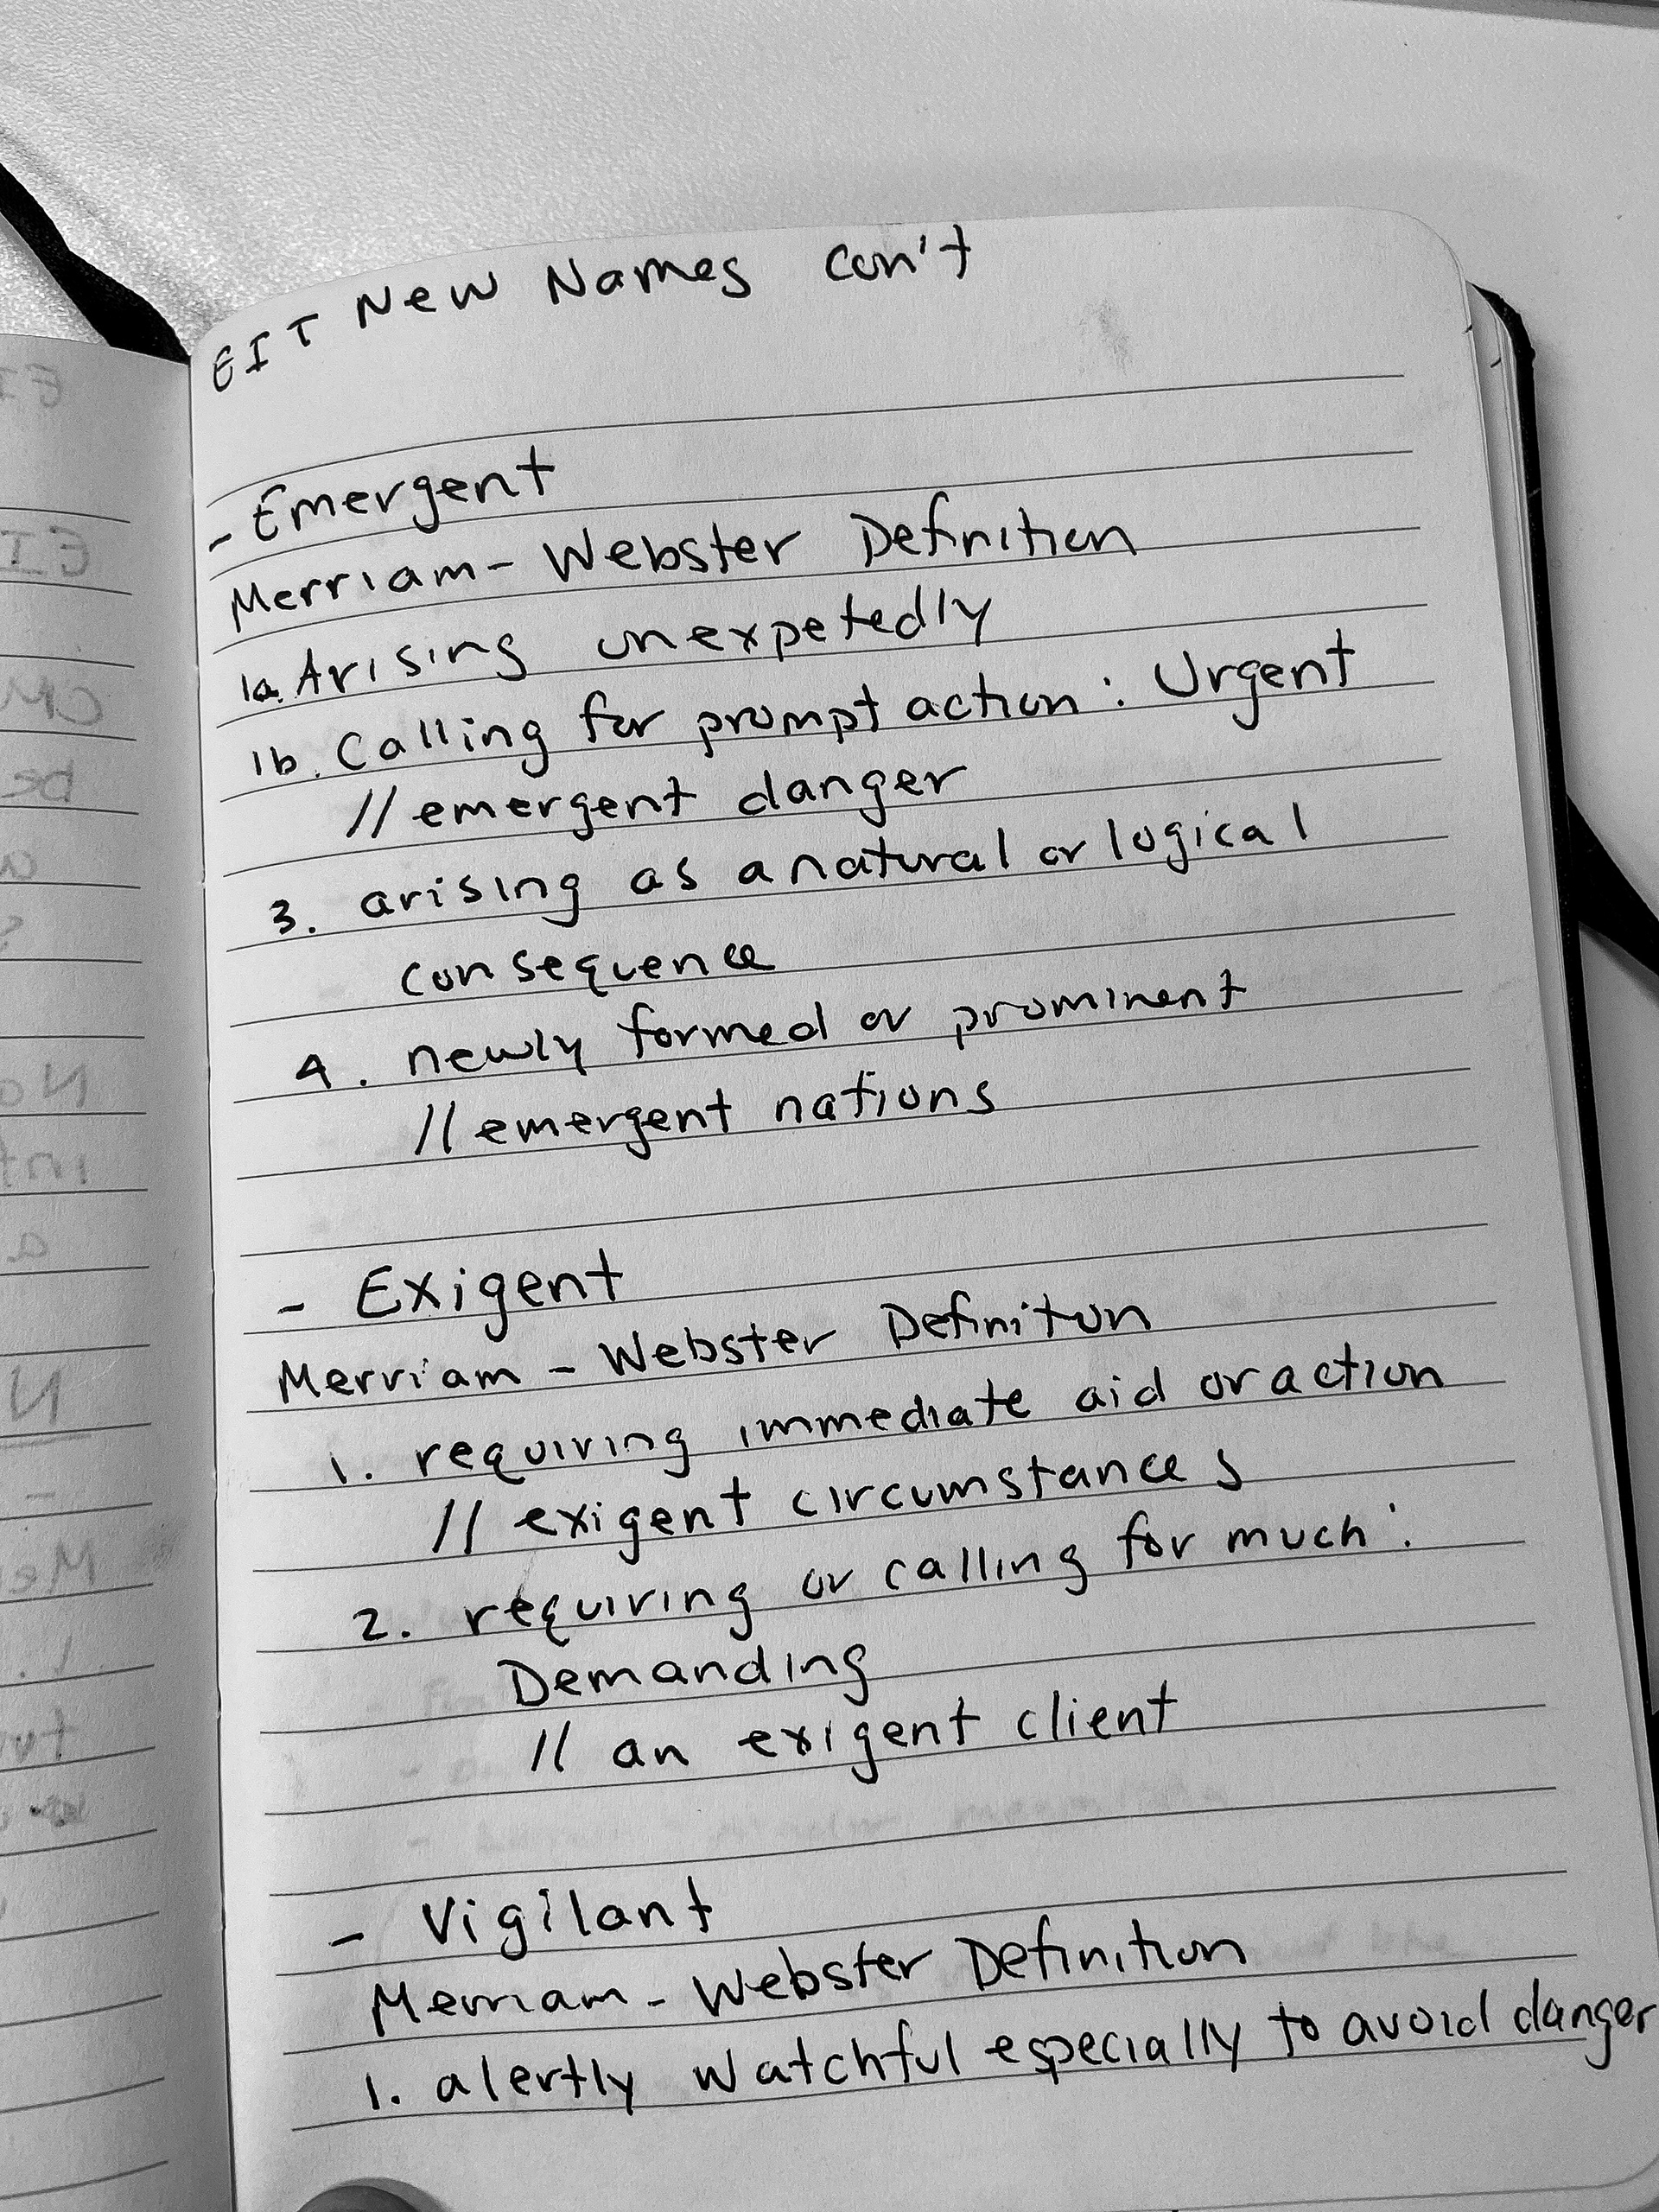 EIT New Names Con't
- Emergent
Merriam-Webster Definition
1a. Arising unexpetedly
1b. Calling for prompt action : Urgent
// emergent danger
3. arising as a natural or logical
consequence
4. newly formed or prominent
// emergent nations
- Exigent
Merriam-Webster Definiton
1. requiring immediate aid or action
// exigent circumstances
2. requiring or calling for much :
Demanding
// an exigent client
- Vigilant
Merriam-Webster Definition
1. alertly watchful especially to avoid danger